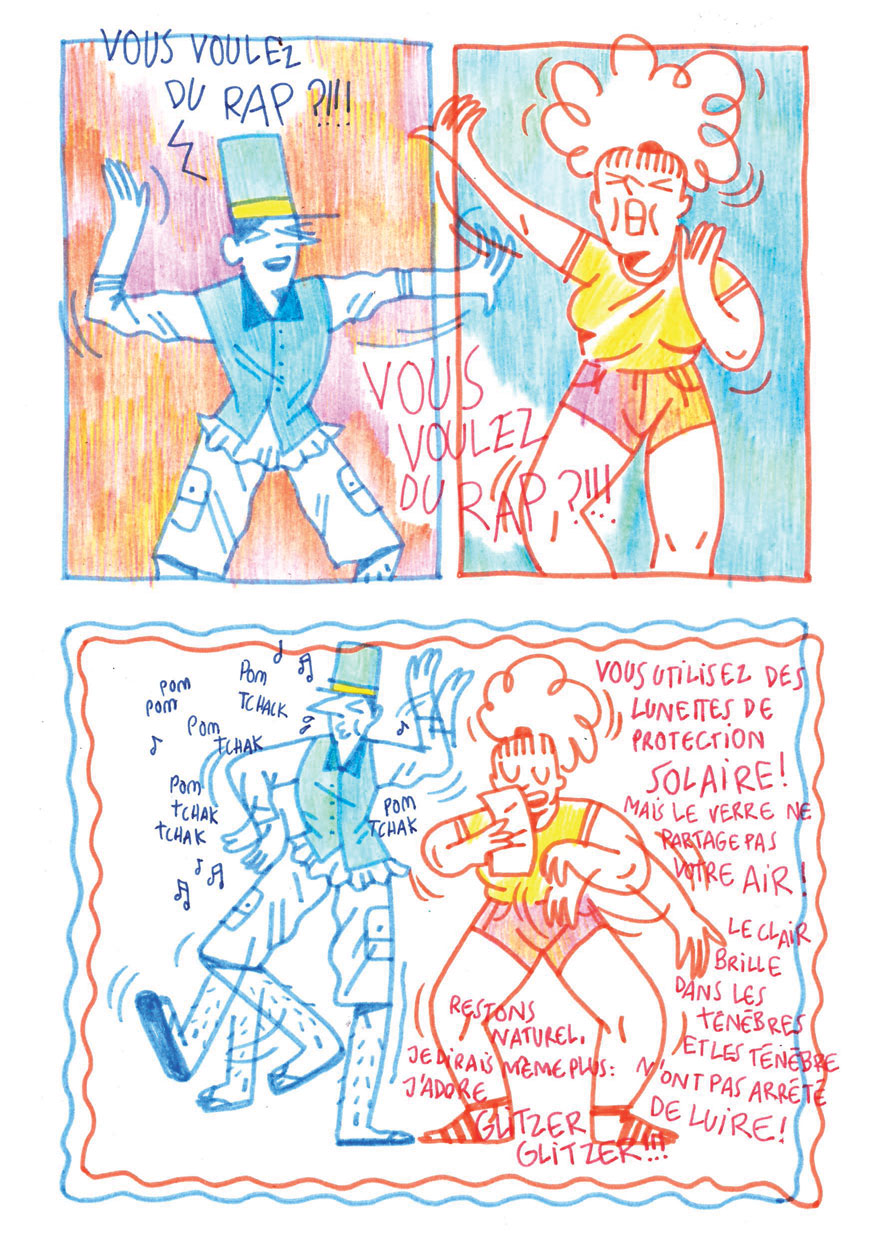 VOUS VOULEZ
DU RAP ?!!!
VOUS
VOULEZ
DU RAP ?!!!
POM
POM
POM
TCHACK
POM
TCHAK
POM
TCHAK
TCHAK
POM
TCHAK
VOUS UTILISEZ DES
LUNETTES DE
PROTECTION
SOLAIRE !
MAIS LE VERRE NE
PARTAGE PAS
VOTRE AIR !
LE CLAIR
BRILLE
DANS LES
TÉNÈBRES
ET LES TÉNÈBRE
N'ONT PAS ARRÊTÉ
DE LUIRE !
RESTONS
NATUREL.
JE DIRAIS MÊME PLUS :
J'ADORE
GLITZER
GLITZER !!!